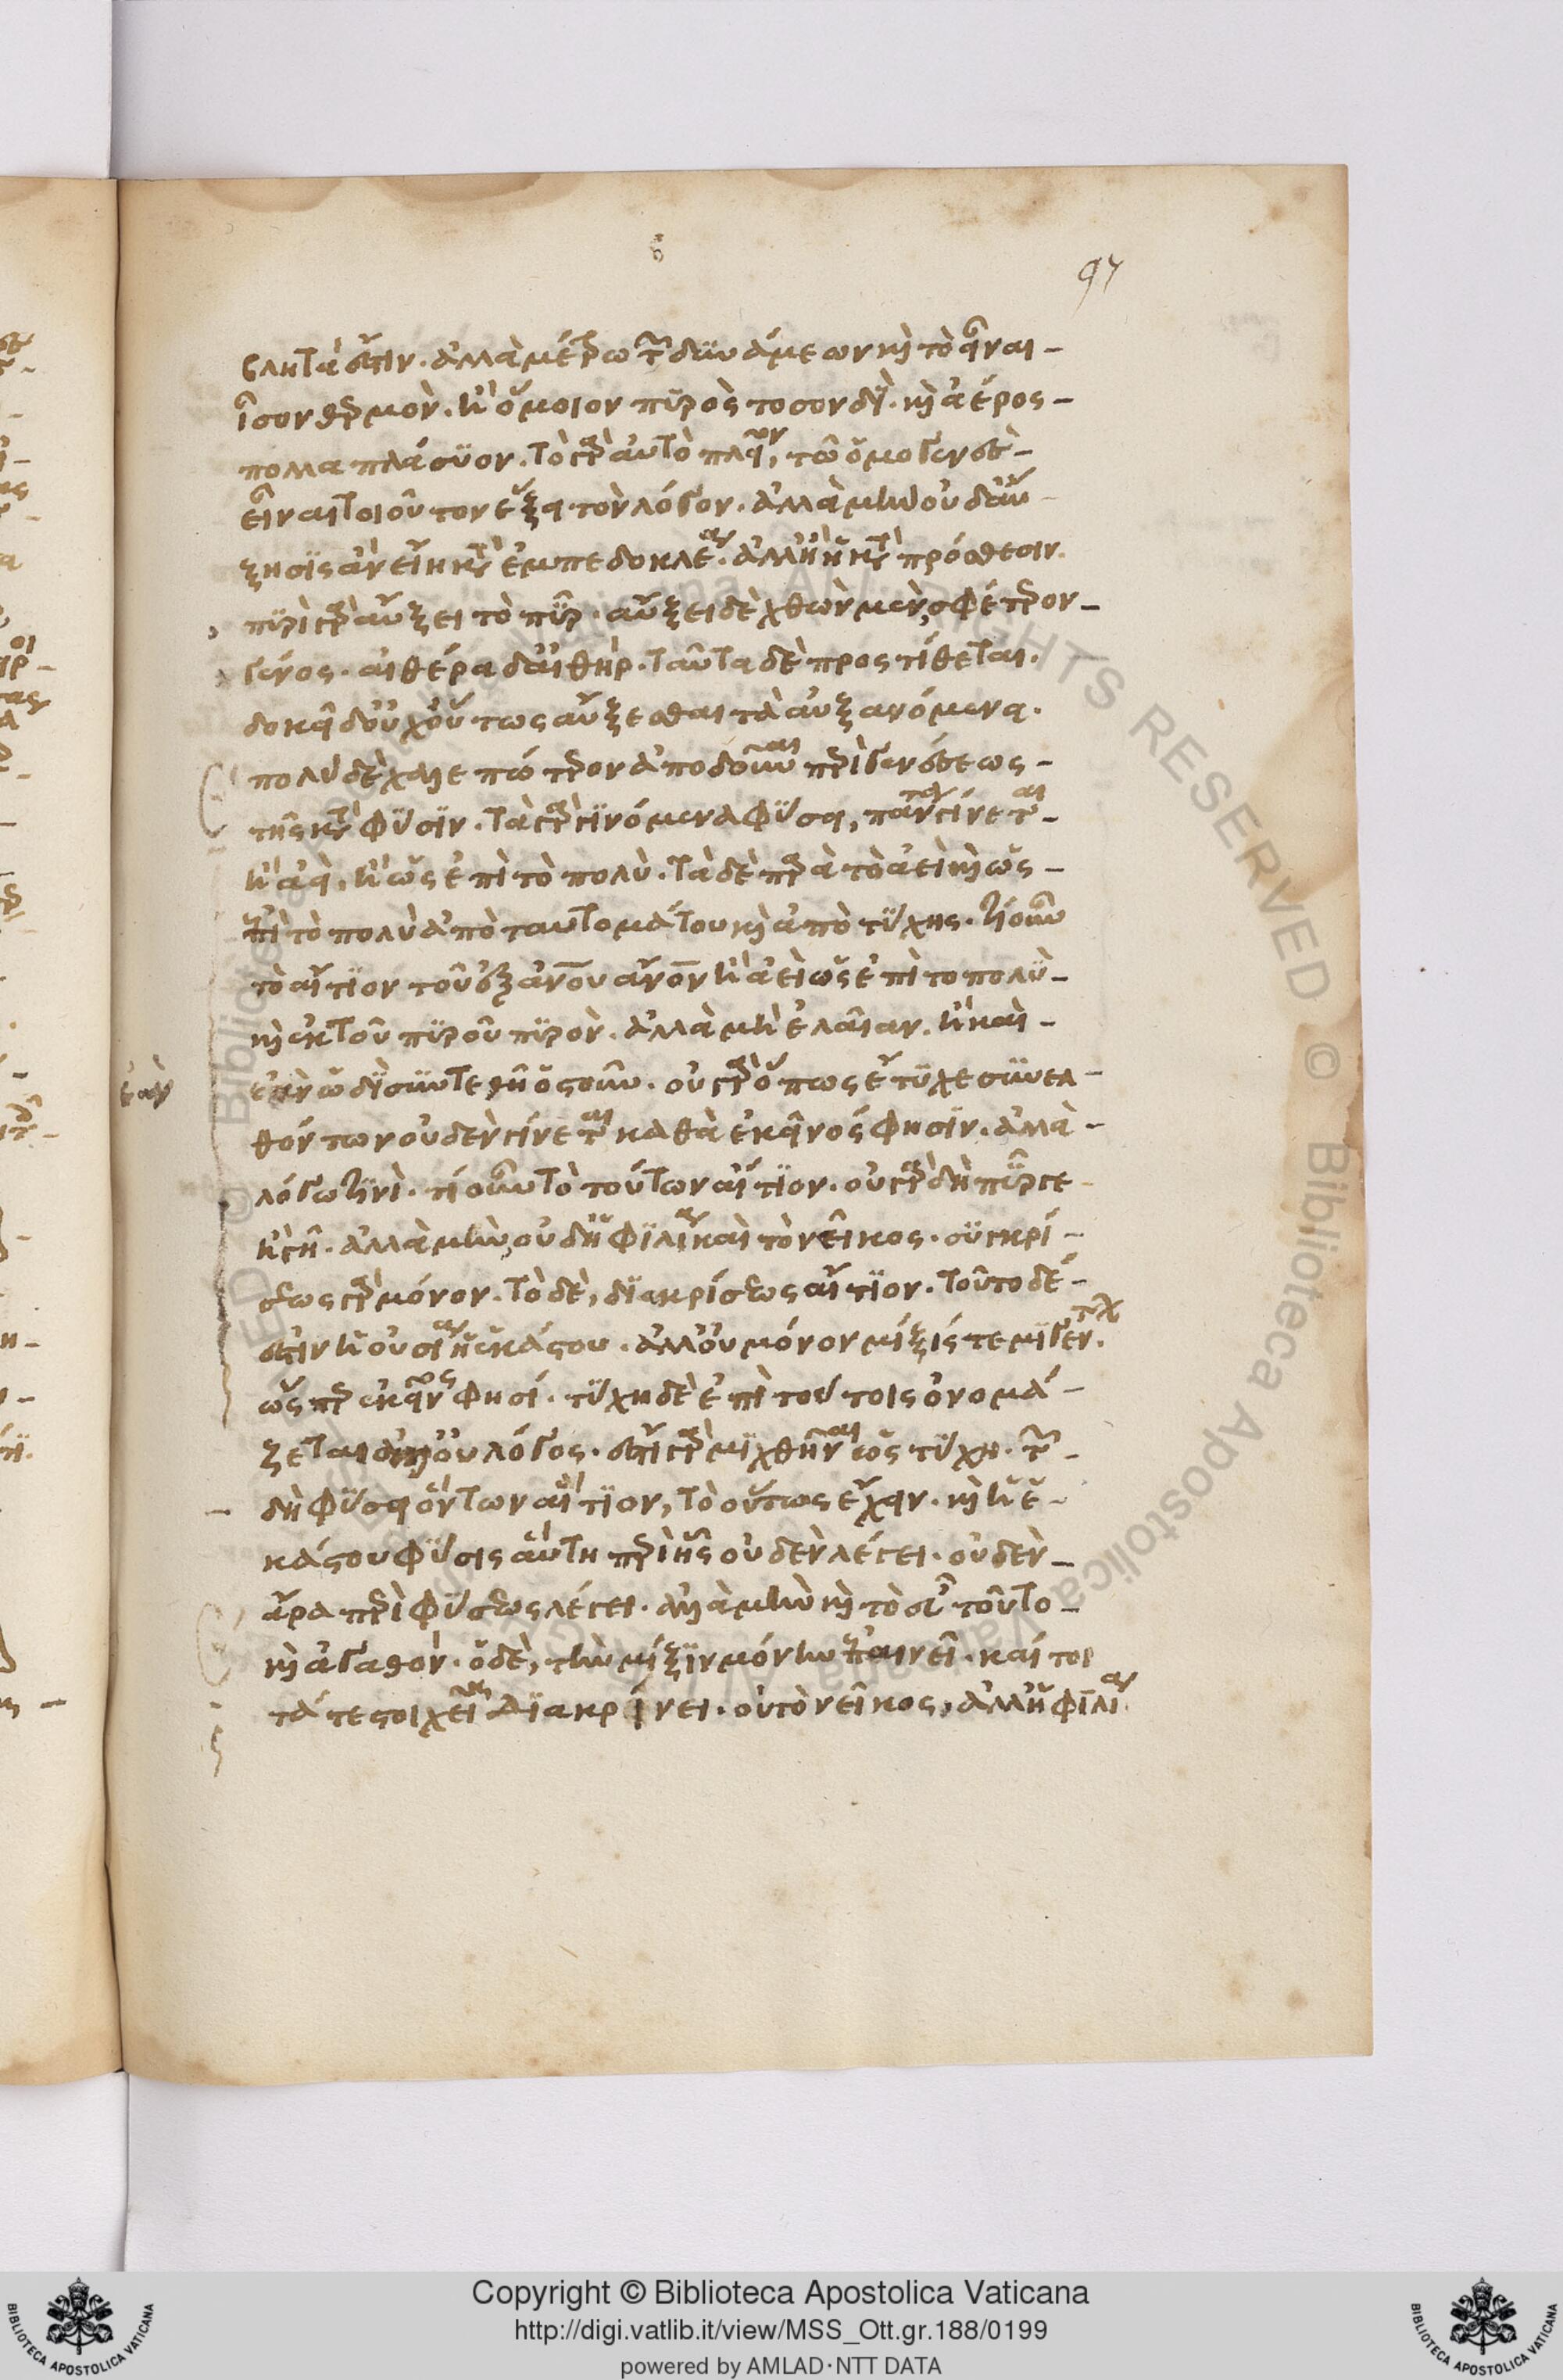 97
βλητά ἐστιν. ἀλλὰ μέτρω τῶν δυνάμεων καὶ τὸ εἶναι
ἴσον θερμὸν. ἢ ὅμοιον πυρὸς τοσονδὶ. καὶ ἀέρος
πολλαπλάσιον. τὸ γὰρ αὐτὸ πλεῖον, τῶ ὁμογενὲς
εἶναι τοιοῦτον ἕξει τὸν λόγον. ἀλλὰ μὴν οὐδ' αὔ
ξησις ἂν εἴη κατ' ἐμπεδοκλέα. ἀλλ' ἢ κατὰ πρόσθεσιν.
πυρὶ γὰρ αὔξει τὸ πῦρ. αὔξει δὲ χθὼν μὲν, σφέτερον
γένος. αἰθέρα δ' αἰθὴρ. ταῦτα δὲ προςτίθεται.
δοκεῖ δ' οὐχ οὕτως αὔξεσθαι τὰ αὐξανόμενα.
πολὺ δὲ χαλεπώτερον ἀποδοῦναι περὶ γενέσεως
τῆς κατὰ φύσιν. τὰ γὰρ γινόμενα φύσει, πάντα γίνεται
ἢ ἀεὶ, ἢ ὡς ἐπὶ τὸ πολὺ. τὰ δὲ παρὰ τὸ ἀεὶ καὶ ὡς
ἐπὶ τὸ πολὺ ἀπὸ ταυτομάτου καὶ ἀπὸ τύχης. τί οὖν
τὸ αἴτιον τοῦ ἐξ ἀνου ἀνον ἢ ἀεὶ ὡς ἐπὶ το πολὺ
καὶ ἐκ τοῦ πυροῦ πυρὸν. ἀλλὰ μὴ ἐλαίαν. ἢ καὶ
ἐὰν
ἐὰν ὡδὶ συντεθῆ ὀστοῦν. οὐ γὰρ ὅπως ἔτυχε συνελ
θόντων οὐδὲν γίνεται καθὰ ἐκεῖνός φησιν. ἀλλὰ
λόγω τινὶ. τί οὖν τὸ τούτων αἴτιον. οὐ γὰρ δὴ πῦρ γε
ἢ γῆ. ἀλλὰ μὴν, οὐδ' ἡ φιλία καὶ τὸ νεῖκος. συγκρί
σεως γὰρ μόνον. τὸ δὲ, διακρίσεως αἴτιον. τοῦτο δέ
ἐστιν ἡ οὐσία ἡ ἑκάστου. ἀλλ' οὐ μόνον μίξίς τε
ὥςπερ ἐκεῖνος φησί. τύχη δὲ ἐπὶ τούτοις ὀνομά
ζεται ἀλλ' οὐ λόγος. ἔστι γὰρ μιχθῆναι ὡς τύχη. τῶν
δὴ φύσει ὄντων αἴτιον, τὸ οὕτως ἔχειν. καὶ ἡ ἑ
κάστου φύσις αὕτη περὶ ἧς οὐδὲν λέγει. οὐδὲν
ἄρα περὶ φύσεως λέγει. ἀλλὰ μὴν καὶ τὸ εὖ τοῦτο
καὶ ἀγαθόν. ὁ δὲ, τὴν μίξιν μόνην ἐπαινεῖ. καίτοι
τά τε στοιχεῖα διακρίνει. οὐ τὸ νεῖκος, ἀλλ' ἡ φιλία
Copyright © Biblioteca Apostolica Vaticana
http://digi.vatlib.it/view/MSS_Ott.gr.188/0199
powered by AMLAD·NTT DATA
BIBLIOTECA APOSTOLICA VATICANA
BIBLIOTECA APOSTOLICA VATICANA